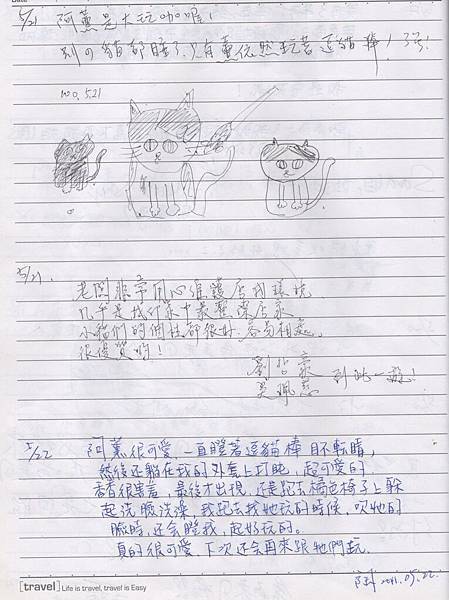 5/21 阿薰是大玩咖喔!
別の貓都睡了,只有薰依然玩著逗貓棒!
100.5.21
5/21.
老闆非常用心維護店內環境
几乎是我印象中最整潔店家
小貓們的個性都很好,容易相處
很優質喲!
劉哲豪
吳珮慈 到此一遊!
5/22 阿薰很可愛,一直瞪著逗貓棒目不轉睛,
然後还躺在我的外套上打盹,超可愛的
香香很害羞,最後才出現,还是跑去橘色椅子上躲
起洗臉洗澡,我跑去找她玩的時候,吹她的
臉時,还会瞪我,起好玩的。
真的很可愛,下次还会再來跟牠們玩.
2011.05.22.
[travel] Life is travel, travel is Easy